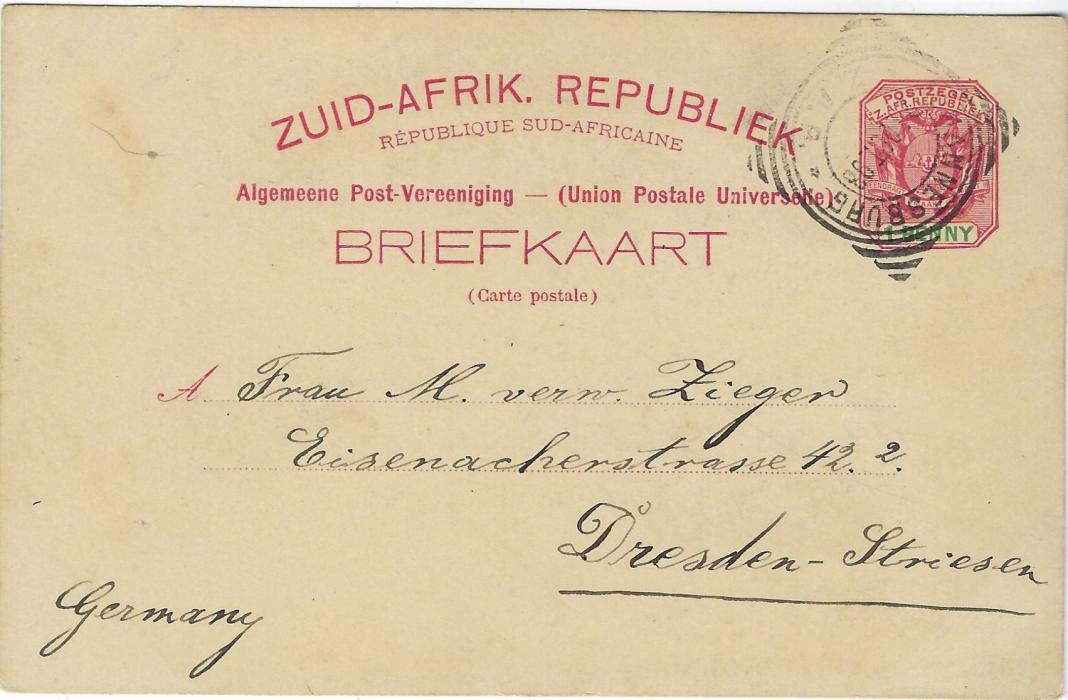 ZUID-AFRIK. REPUBLIEK
RÉPUBLIQUE SUD-AFRICAINE
Algemeene Post-Vereeniging — (Union Postale Universelle)
BRIEFKAART
(Carte postale)
POSTZEGEL
Z. AFR. REPUBLIEK
1 PENNY
A Frau M. verw. Zieger
Eisenacherstrasse 42. 2.
Dresden-Striesen
Germany